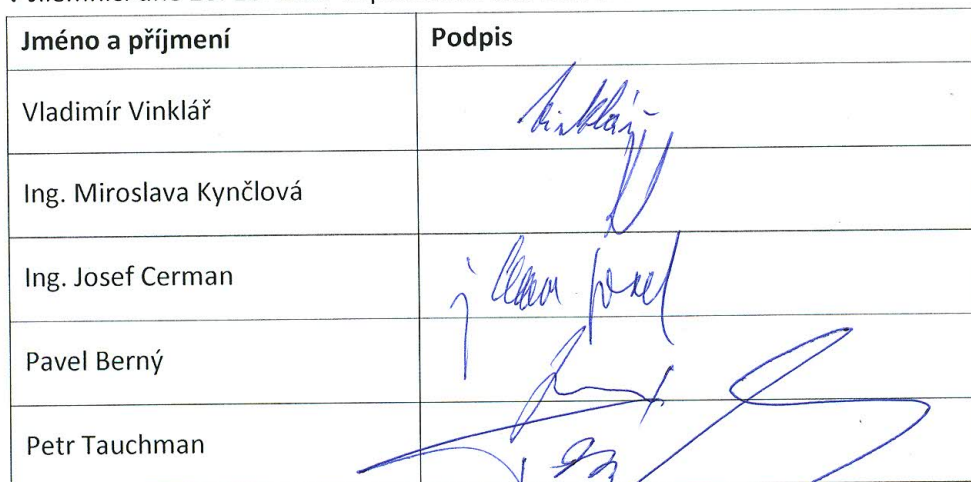 Jméno a příjmení Podpis
Vladimír Vinklář Vinklář
Ing. Miroslava Kynčlová
Ing. Josef Cerman
Pavel Berný
Petr Tauchman